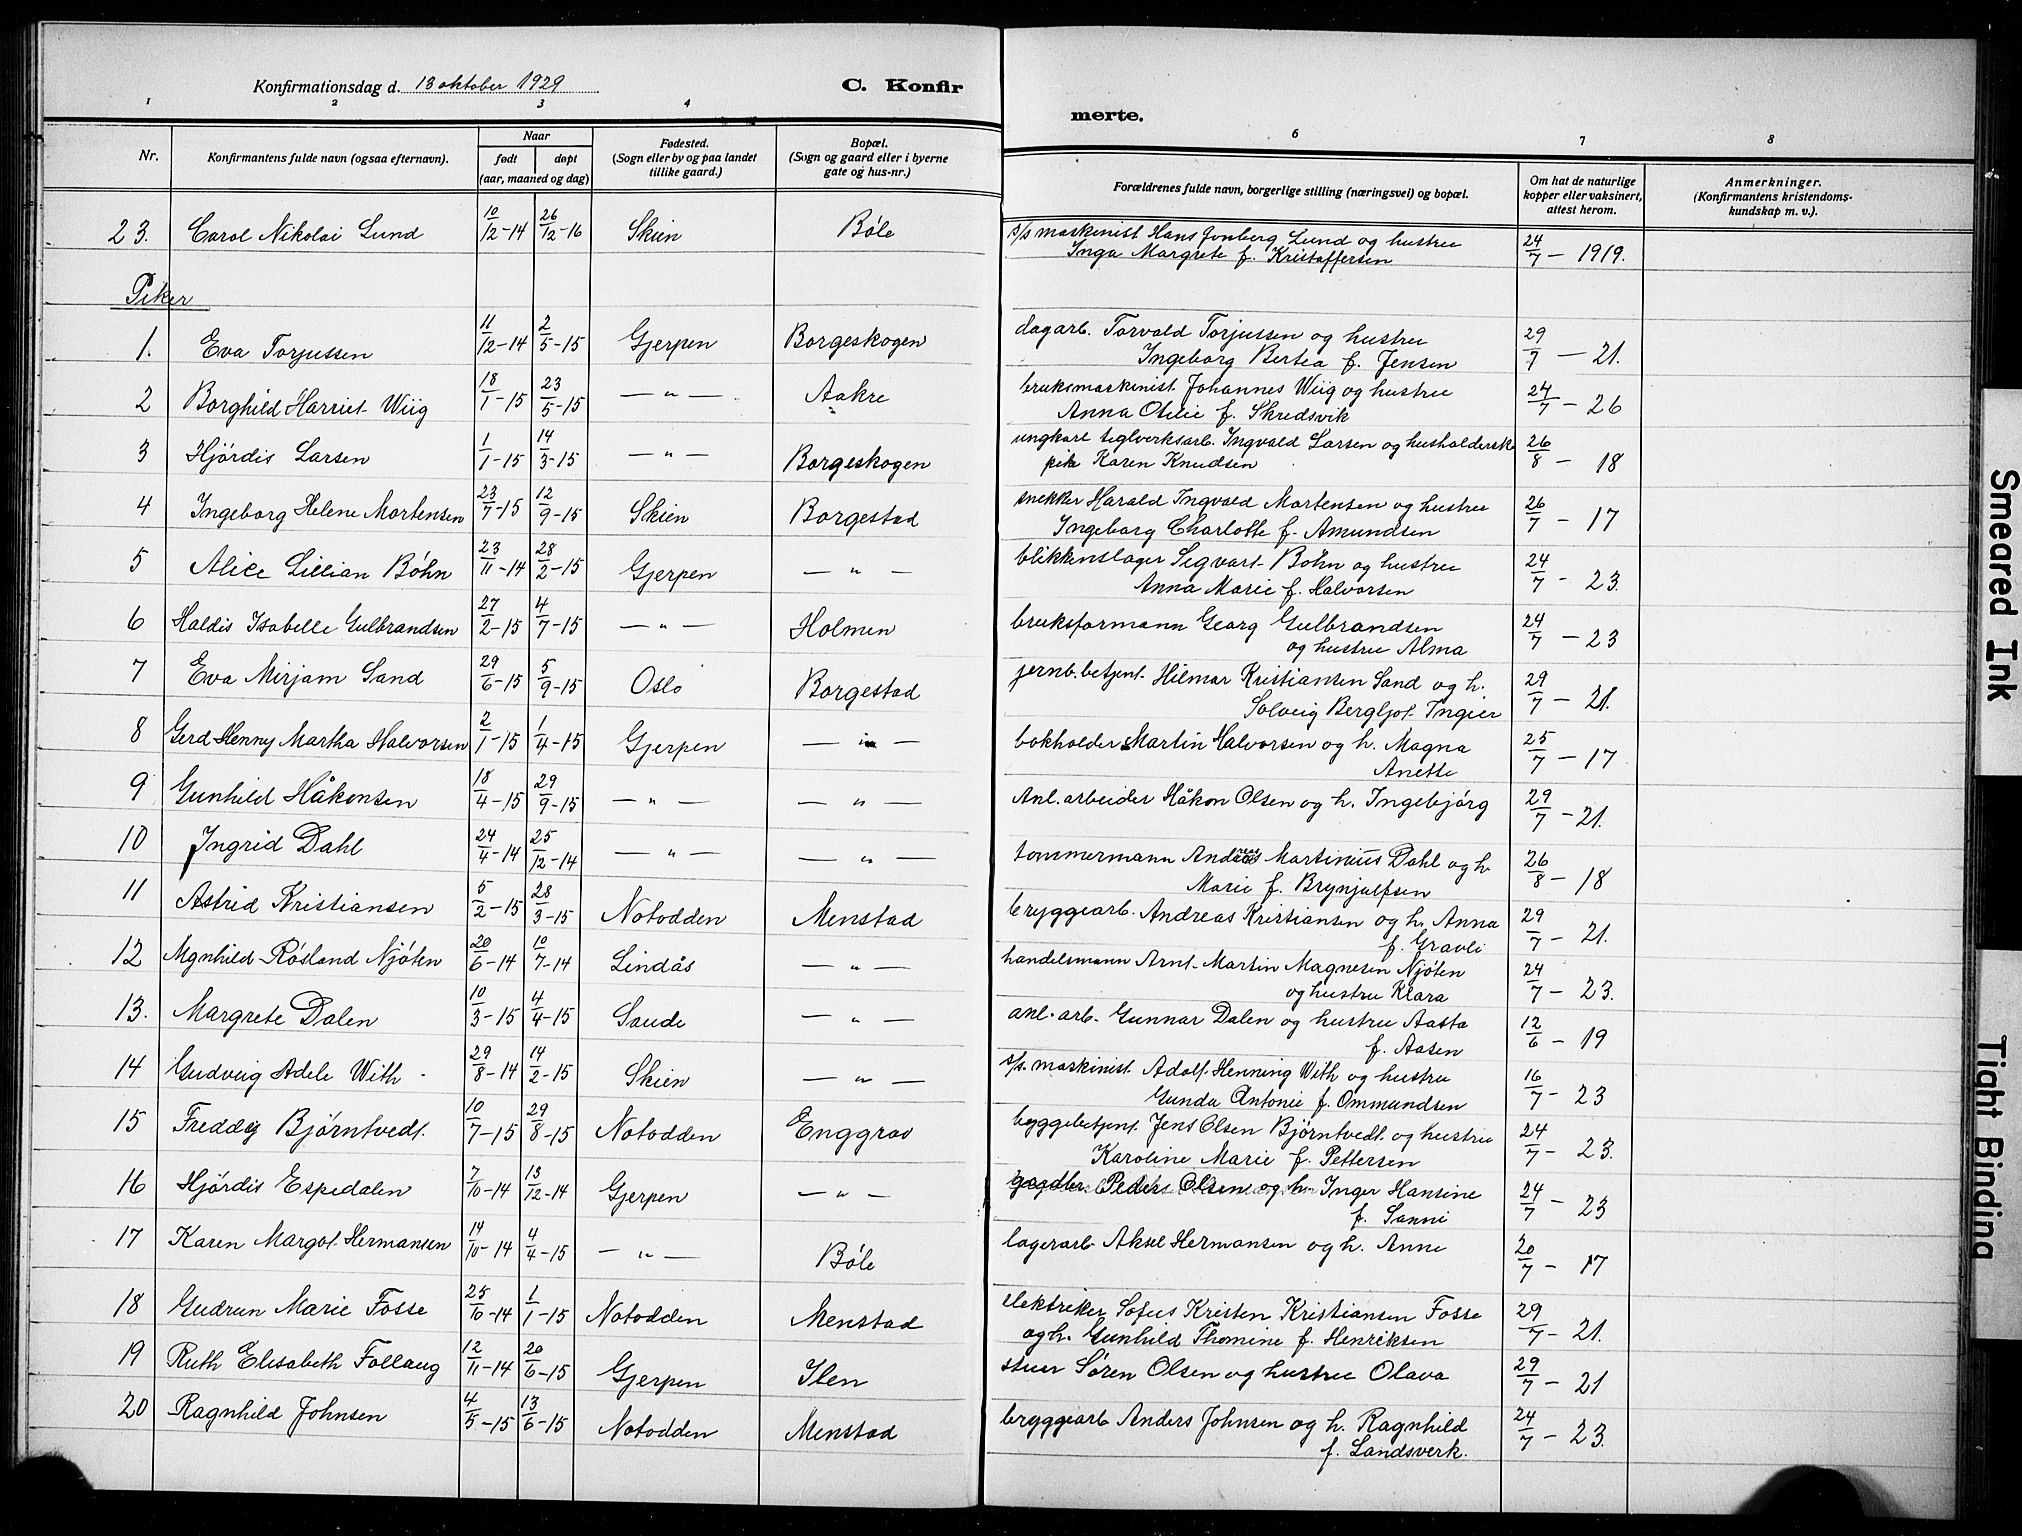 Konfirmationsdag d. 13 oktober 1929
C. Konfir
merte.
1 2 3 4 6 7 8
Nr. Konfirmantens fulde navn (ogsaa efternavn). Naar født døpt (aar, maaned og dag) Fødested. (Sogn eller by og paa landet tillike gaard.) Bopæl. (Sogn og gaard eller i byerne gate og hus-nr.) Forældrenes fulde navn, borgerlige stilling (næringsvei) og bopæl. Om hat de naturlige kopper eller vaksinert, attest herom. Anmerkninger. (Konfirmantens kristendoms-kundskap m. v.).
23. Carol Nikolai Lund 10/12-14 26/12-16 Skien Bøle s/s maskinist Hans Lund og hustru 24/7 - 1919.
Inga Margrete f. Kristoffersen
Piker
1. Eva Torjussen 11/12-14 2/5-15 Gjerpen Borgeskogen dagarb. Torvald Torjussen og hustru 29/7 - 21.
Ingeborg Bertea f. Jensen
2 Borghild Harriet Wiig 18/1-15 23/5-15 — " — Aakre bruksmaskinist Johannes Wiig og hustru 24/7 - 26
Anna Otilie f. Skredsvik
3 Hjørdis Larsen 1/1-15 14/3-15 — " — Borgeskogen ungkarl teglverksarb. Ingvald Larsen og husholderske 26/8 - 18
pike Karen Knudsen
4 Ingeborg Helene Mortensen 23/7-15 12/9-15 Skien Borgestad snekker Harald Ingvald Mortensen og hustru 26/7 - 17
Ingeborg Charlotte f. Amundsen
5 Alice Lillian Bøhn 23/11-14 28/2-15 Gjerpen — " — blikkenslager Sigvart Bøhn og hustru 24/7 - 23.
Anna Marie f. Halvorsen
6 Haldis Isabelle Gulbrandsen 27/2-15 4/7-15 — " — Holmen bruksformann Georg Gulbrandsen 24/7 - 23
og hustru Alma
7 Eva Mirjam Sand 29/6-15 5/9-15 Oslo Borgestad jernb.betjent Hilmar Kristiansen Sand og h. 29/7 - 21.
Solveig Bergljot Ingier
8 Gerd Henny Martha Halvorsen 2/1-15 1/4-15 Gjerpen — " — bokholder Martin Halvorsen og h. Magna 25/7 - 17
Anette
9 Gunhild Håkonsen 18/4-15 29/9-15 — " — — " — Anl. arbeider Håkon Olsen og h. Ingebjørg 29/7 - 21.
10 Ingrid Dahl 24/4-14 25/12-14 — " — — " — tømmermann Andreas Martinius Dahl og h 26/8 - 18
Marie f. Brynjulfsen
11 Astrid Kristiansen 5/2-15 28/3-15 Notodden Menstad bryggearb. Andreas Kristiansen og h. Anna 29/7 - 21.
f. Gravli
12 Magnhild Røsland Njøten 20/6-14 10/7-14 Lindås — " — handelsmann Arnt Martin Magnesen Njøten 24/7 - 23.
og hustru Klara
13. Margrete Dalen 10/3-15 4/4-15 Saude — " — anl. arb. Gunnar Dalen og hustru Aasta 12/6 - 19
f. Aasen
14 Gudveig Adele With 29/8-14 14/2-15 Skien — " — s/s. maskinist Adolf Henning With og hustru 16/7 - 23
Gunda Antonie f. Ommundsen
15 Freddy Bjørntvedt. 10/7-15 29/8-15 Notodden Enggrav byggebetjent Jens Olsen Bjørntvedt og hustru 24/7 - 23.
Karoline Marie f. Pettersen
16 Hjørdis Espedalen 7/10-14 13/12-14 Gjerpen — " — Peder Olsen og h. Inger Hansine 24/7 - 23
f. Sanni
17 Karen Margot Hermansen 14/10-14 4/4-15 — " — Bøle lagerarb. Aksel Hermansen og h. Anne 20/7 - 17
18 Gudrun Marie Fosse 25/10-14 1/1-15 Notodden Menstad elektriker Sofus Kristen Kristiansen Fosse 29/7 - 21.
og h. Gunhild Thomine f. Henriksen
19 Ruth Elisabeth Follaug 12/11-14 20/6-15 Gjerpen Ilen stuer Søren Olsen og hustru Olava 29/7 - 21
20 Ragnhild Johnsen 4/5-15 13/6-15 Notodden Menstad bryggearb Anders Johnsen og h. Ragnhild 24/7 - 23.
f. Landsverk.
Smeared Ink
Tight Binding